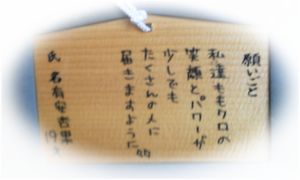 願いごと
私達ももクロの
笑顔とパワーが
少しでも
たくさんの人に
届きますように
氏名有安杏果